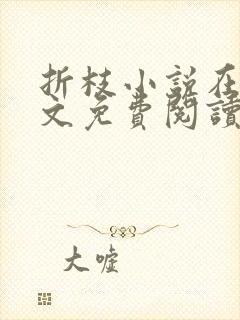 折枝小说在
文免费閱讀
大嘘